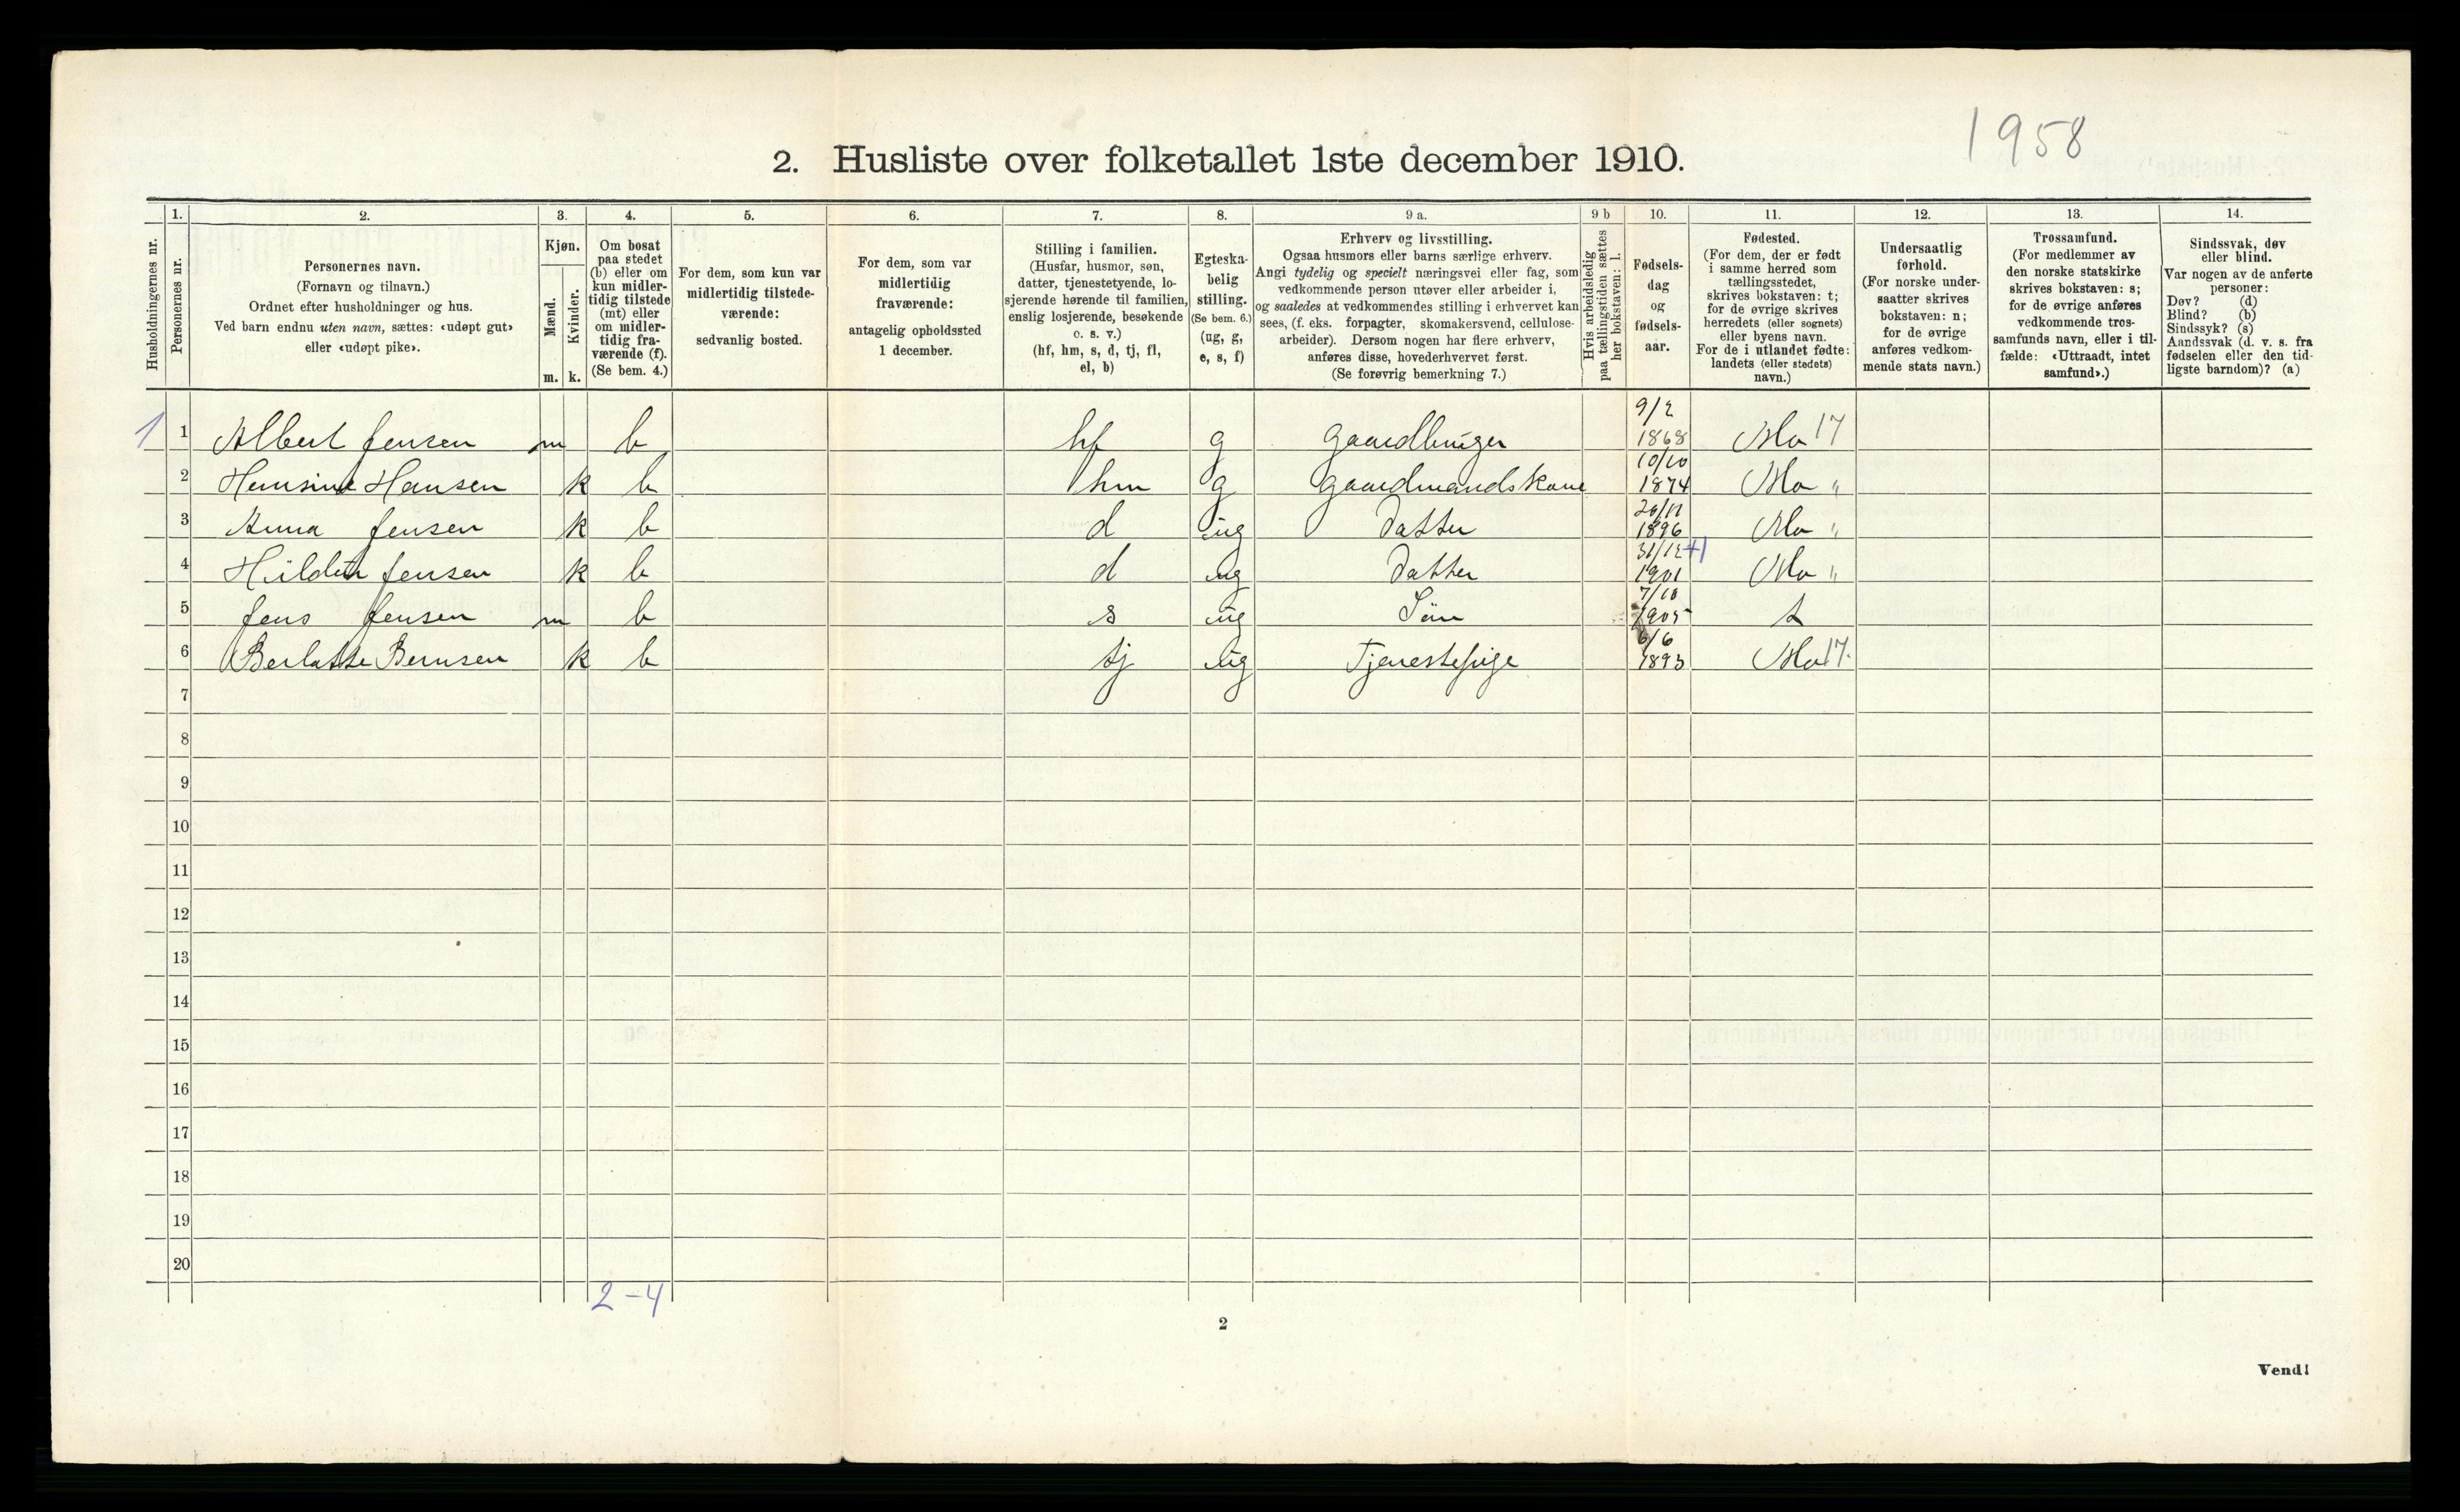 1958
2. Husliste over folketallet 1ste december 1910.
Husholdningernes nr.
1.
Personernes nr.
2.
Personernes navn.
(Fornavn og tilnavn.)
Ordnet efter husholdninger og hus.
Ved barn endnu uten navn, sættes: «udøpt gut»
eller «udøpt pike».
3.
Kjøn.
Mænd.
Kvinder.
m. k.
4.
Om bosat
paa stedet
(b) eller om
kun midler-
tidig tilstede
(mt) eller
om midler-
tidig fra-
værende (f).
(Se bem. 4.)
5.
For dem, som kun var
midlertidig tilstede-
værende:
sedvanlig bosted.
6.
For dem, som var
midlertidig
fraværende:
antagelig opholdssted
1 december.
7.
Stilling i familien.
(Husfar, husmor, søn,
datter, tjenestetyende, lo-
sjerende hørende til familien,
enslig losjerende, besøkende
o. s. v.)
(hf, hm, s, d, tj, fl,
el, b)
8.
Egteska-
belig
stilling.
(Se bem. 6.)
(ug, g,
e, s, f)
9 a.
Erhverv og livsstilling.
Ogsaa husmors eller barns særlige erhverv.
Angi tydelig og specielt næringsvei eller fag, som
vedkommende person utøver eller arbeider i,
og saaledes at vedkommendes stilling i erhvervet kan
sees, (f. eks. forpagter, skomakersvend, cellulose-
arbeider). Dersom nogen har flere erhverv,
anføres disse, hovederhvervet først.
(Se forøvrig bemerkning 7.)
9 b
Hvis arbeidsledig
paa tællingstiden sættes
her bokstaven: l.
10.
Fødsels-
dag
og
fødsels-
aar.
11.
Fødested.
(For dem, der er født
i samme herred som
tællingsstedet,
skrives bokstaven: t;
for de øvrige skrives
herredets (eller sognets)
eller byens navn.
For de i utlandet fødte:
landets (eller stedets)
navn.)
12.
Undersaatlig
forhold.
(For norske under-
saatter skrives
bokstaven: n;
for de øvrige
anføres vedkom-
mende stats navn.)
13.
Trossamfund.
(For medlemmer av
den norske statskirke
skrives bokstaven: s;
for de øvrige anføres
vedkommende tros-
samfunds navn, eller i til-
fælde: «Uttraadt, intet
samfund».)
14.
Sindssvak, døv
eller blind.
Var nogen av de anførte
personer:
Døv? (d)
Blind? (b)
Sindssyk? (s)
Aandssvak (d. v. s. fra
fødselen eller den tid-
ligste barndom)? (a)
1 1 Albert Jensen m b hf g Gaardbruger 9/2 1868 Mo 17
2 Hansen k b hm g Gaardmandskone 10/10 1874 Mo "
3 Anna Jensen k b d ug Datter 1896 Mo "
4 Jensen k b d ug Datter 31/12 1901 Mo "
5 Jens Jensen m b s ug Søn 7/10 1905 t
6 k b tj ug Tjenestepige 6/6 1893 Mo 17.
7
8
9
10
11
12
13
14
15
16
17
18
19
20
2-4
2
Vend!